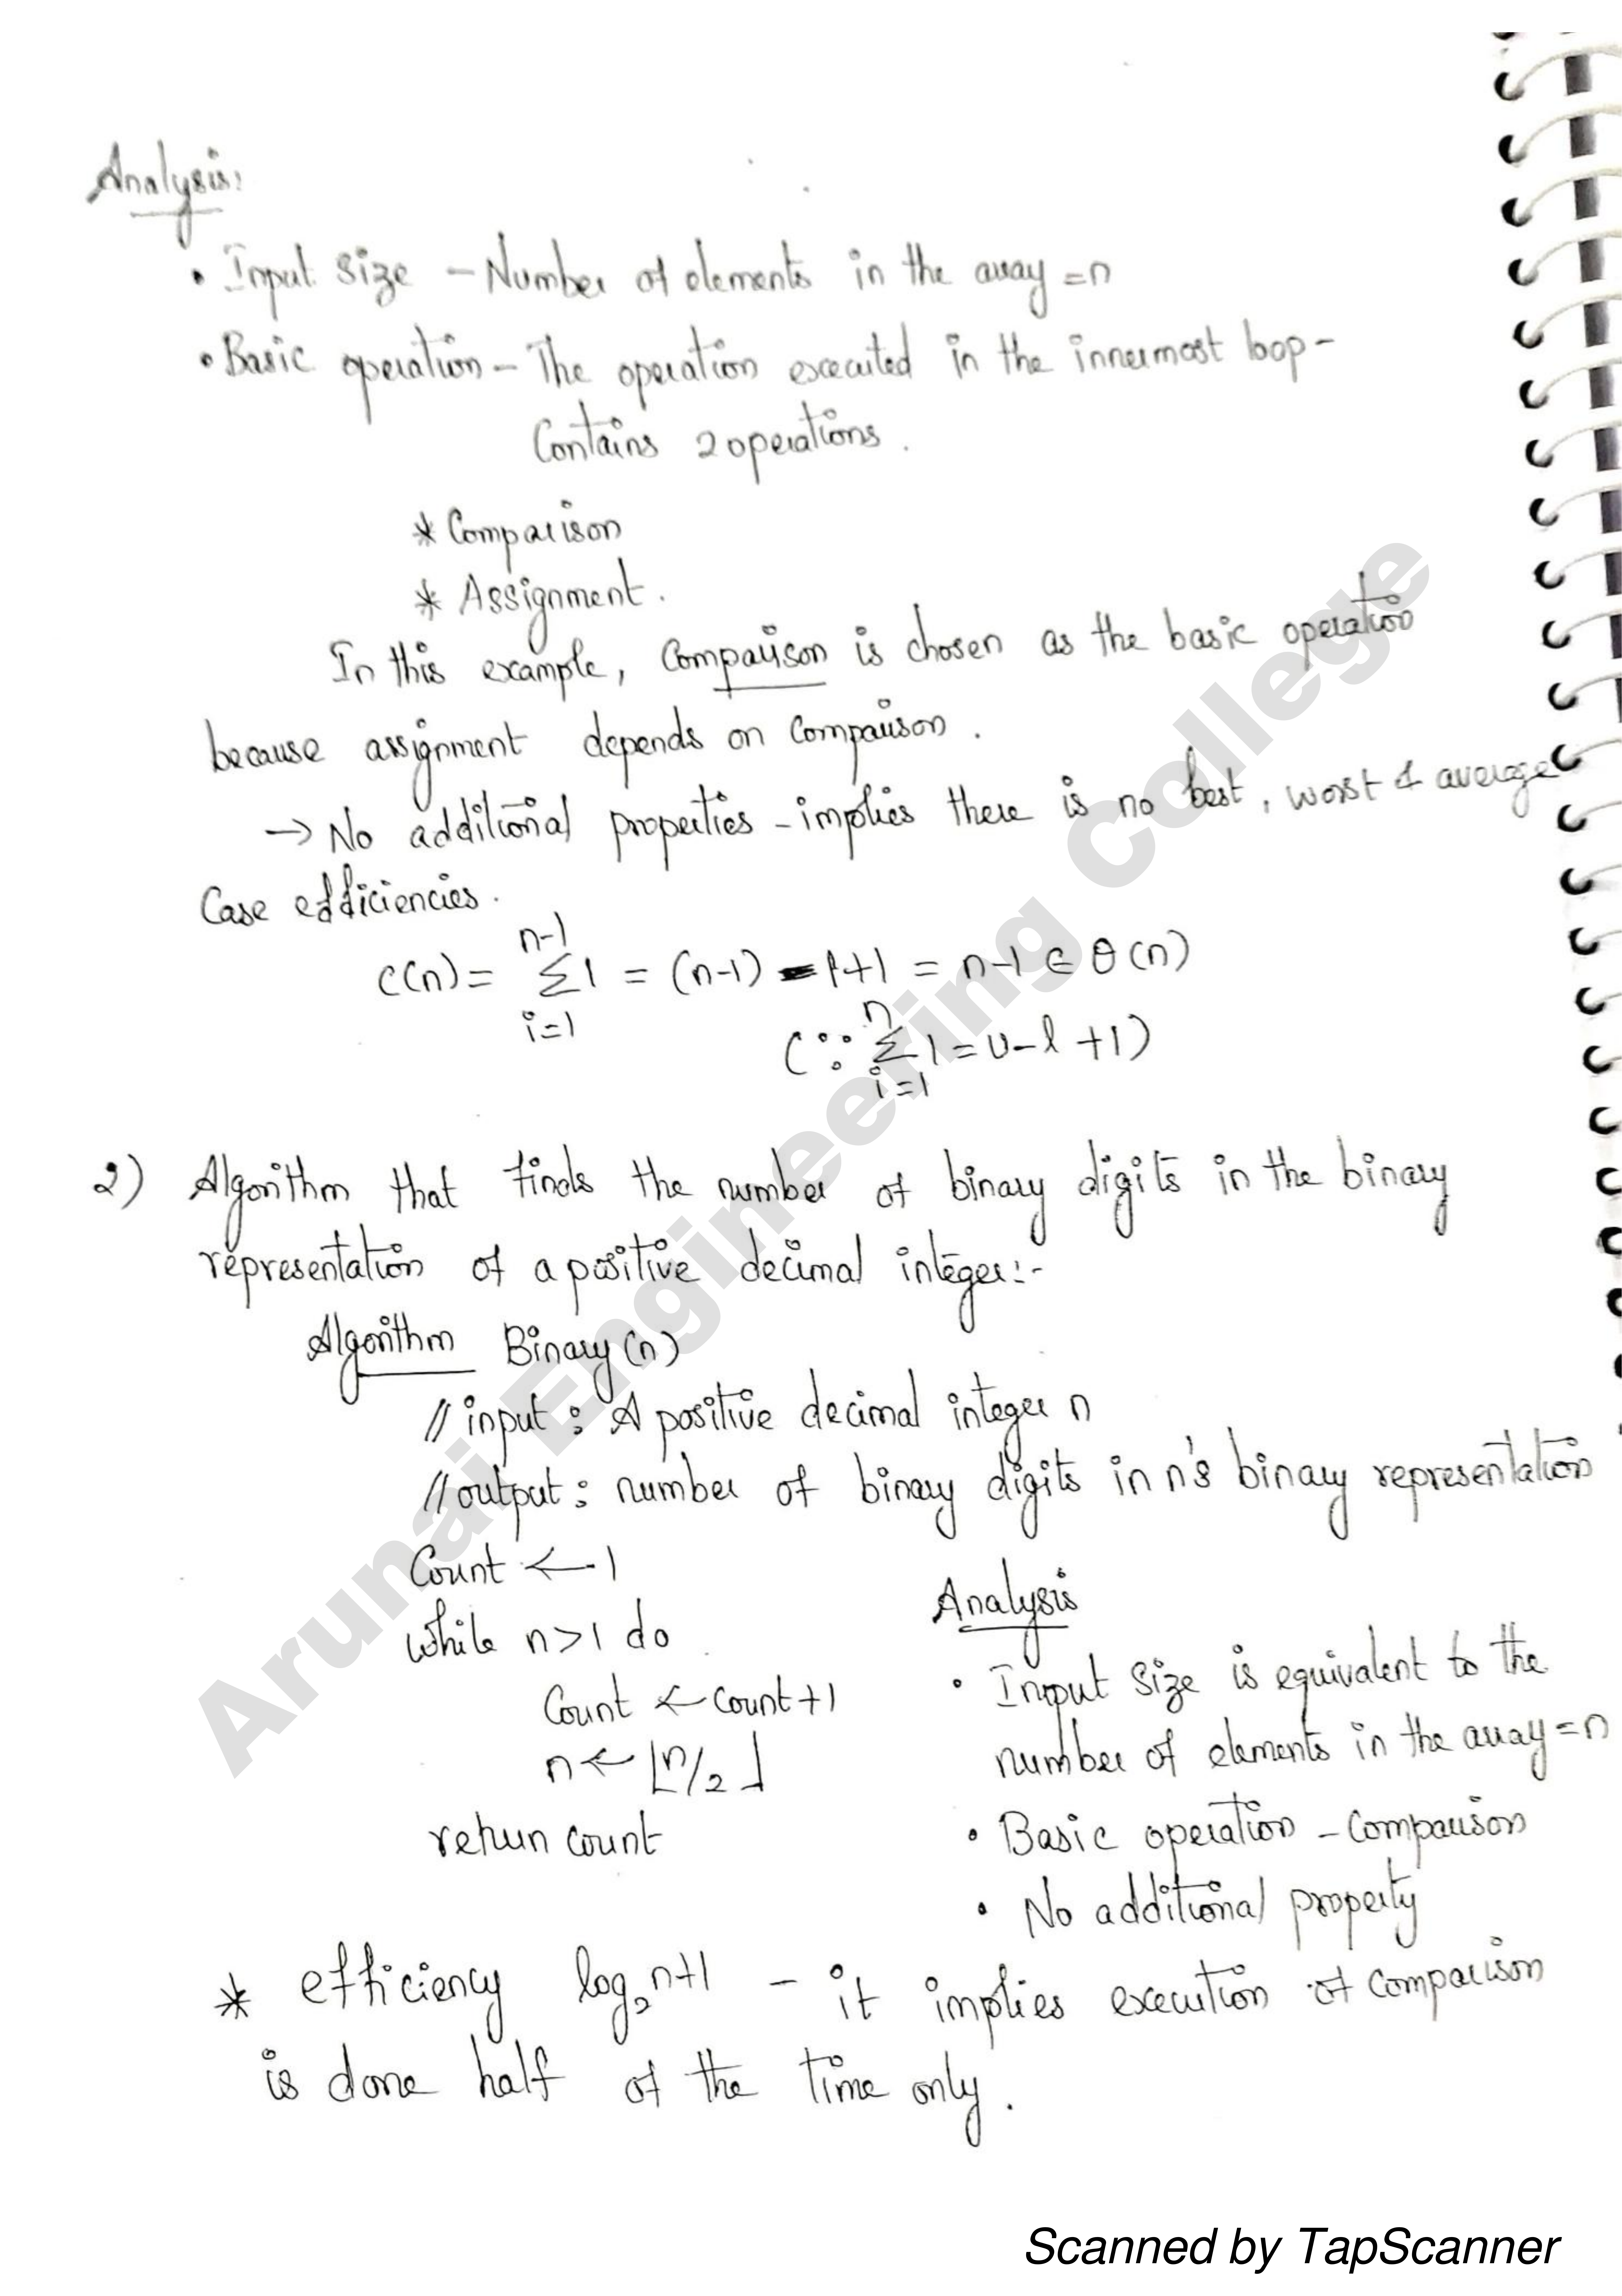 Analysis:
• Input size - Number of elements in the array = n
• Basic operation - The operation executed in the innermost loop -
Contains 2 operations.
* Comparison
* Assignment.
In this example, Comparison is chosen as the basic operation
because assignment depends on Comparison.
→ No additional properties - implies there is no best, worst & average
Case efficiencies.
C(n) = n-1 Σ i=1 1 = (n-1) - 1+1 = n-1 ∈ θ(n)
(∵ n Σ i=1 1 = u-l+1)
2) Algorithm that finds the number of binary digits in the binary
representation of a positive decimal integer:-
Algorithm Binary(n)
// input : A positive decimal integer n
// output : number of binary digits in n's binary representation
Count ← 1
while n>1 do
Count ← count+1
n ← ⌊n/2⌋
return count
Analysis
• Input size is equivalent to the
number of elements in the array = n
• Basic operation - Comparison
• No additional property
* efficiency log₂n+1 - it implies execution of comparison
is done half of the time only.
Arunai Engineering College
Scanned by TapScanner